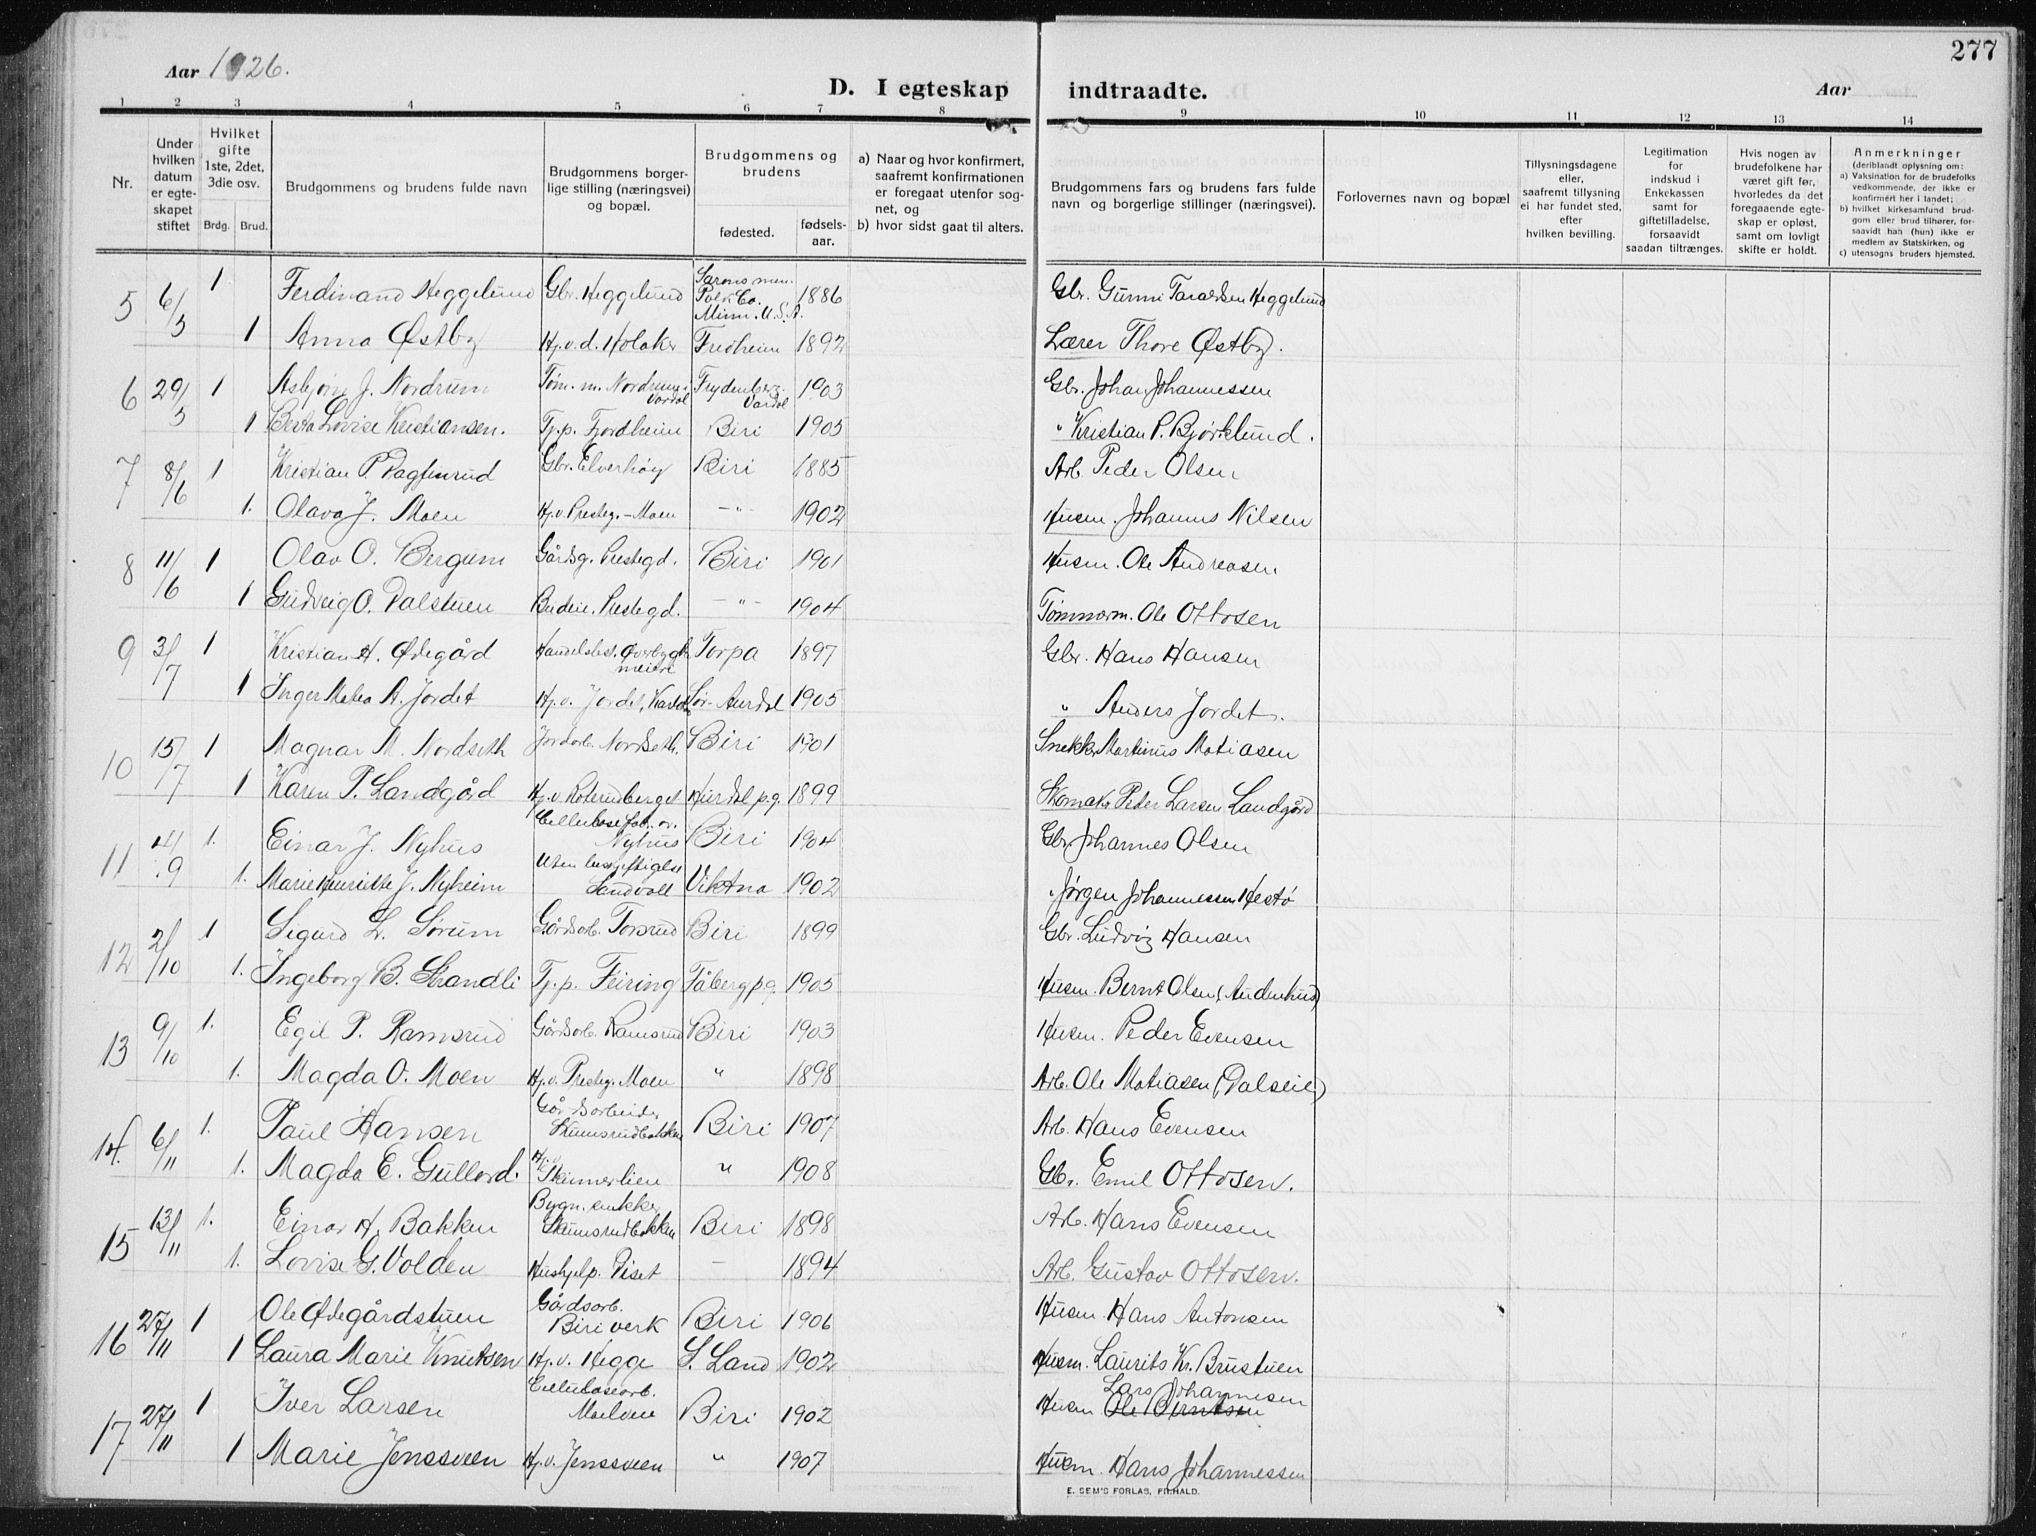 277
Aar 1926.
D. I egteskap indtraadte.
Aar
1 2 3 4 5 6 7 8 9 10 11 12 13 14
Nr.
Under
hvilken
datum
er egte-
skapet
stiftet
Hvilket
gifte
1ste, 2det,
3die osv.
Brdg. Brud.
Brudgommens og brudens fulde navn
Brudgommens borger-
lige stilling (næringsvei)
og bopæl.
Brudgommens og
brudens
fødested.
fødsels-
aar.
a) Naar og hvor konfirmert,
saafremt konfirmationen
er foregaat utenfor sog-
net, og
b) hvor sidst gaat til alters.
Brudgommens fars og brudens fars fulde
navn og borgerlige stillinger (næringsvei).
Forlovernes navn og bopæl
Tillysningsdagene
eller,
saafremt tillysning
ei har fundet sted,
efter
hvilken bevilling.
Legitimation
for
indskud i
Enkekassen
samt for
giftetilladelse,
forsaavidt
saadan tiltrænges.
Hvis nogen av
brudefolkene har
været gift før,
hvorledes da det
foregaaende egte-
skap er opløst,
samt om lovligt
skifte er holdt.
Anmerkninger
(deriblandt oplysning om:
a) Vaksination for de brudefolks
vedkommende, der ikke er
konfirmert her i landet;
b) hvilket kirkesamfund brud-
gom eller brud tilhører, for-
saavidt han (hun) ikke er
medlem av Statskirken, og
c) utensogns bruders hjemsted.
5 6/5 1 Ferdinand Heggelund Gbr. Heggelund Polk Co. Minn. U.S.A. 1886 Gbr. Gunni Taraldsen Heggelund
1 Anna Østby Hj.v.d. Holaker Fredheim 1892 Lærer Thore Østby.
6 29/5 1 Asbjørn J. Nordrum Tøm. m. Nordrum i Vardal Frydenberg Vardal 1903 Gbr. Johan Johannessen
1 Berta Lovise Kristiansen. Tj.p. Fjordheim Biri 1905 " Kristian P. Bjørklund.
7 8/6 1 Kristian P. Dagfinrud Gbr. Elverhøy Biri 1885 Arb. Peder Olsen
1. Olava J. Moen Hj.v. Presteg.-Moen -"- 1902 Husm. Johannes Nilsen
8 11/6 1 Olav O. Bergum Gårdsg. Prestegd. Biri 1901 Husm. Ole Andreasen
1 Gudveig O. Dalstuen Budeie. Prestegd. -"- 1904 Tømmerm. Ole Ottosen
9 3/7 1 Kristian H. Ødegård Handelsbest. Øverbygda meieri Torpa 1897 Gbr. Hans Hansen
1 Inger Matea A. Jordet Hj.v. Jordet, Sør-Aurdal 1905 " Anders Jordet.
10 15/7 1 Magnar M. Nordseth Jordarb. Nordseth. Biri 1901 Snekker Martinus Matiasen
1 Karen P. Landgård Hj.v. Roterudberget Hurdal p.g. 1899 Skomaker Peder Larsen Landgård
11 4/9 1. Einar J. Nyhus Cellulosefab. ar. Nyhus Biri 1904 Gbr. Johannes Olsen
1. Marie Henriette J. Nyheim Uten beskjeftigelse Sandvoll Vikna 1902 " Jørgen Johannessen Hestø
12 2/10 1 Sigurd L. Sørum Gårdsarb. Torsrud Biri 1899 Gbr. Ludvig Hansen
1. Ingeborg B. Strandli Tj.p. Feiring Fåberg p.g. 1905 Husm. Bernt Olsen (Audenhus)
13 9/10 1. Egil P. Ramsrud Gårdsarb. Ramsrud Biri 1903 Husm. Peder Evensen
1. Magda O. Moen Hj.v. Presteg. Moen " 1898 Arb. Ole Matiasen (Dalseie)
14. 6/11 1. Paul Hansen Gårdsarbeider Skumsrudbakken Biri 1907 Arb. Hans Evensen
1. Magda E. Gullord. Hj.v. Skinnerlien " 1908 Gbr. Emil Ottosen.
15 13/11 1. Einar H. Bakken Bygn.snekker Skumsrudbakken Biri 1898 Arb. Hans Evensen
1. Lovise G. Volden Hushjelp. Viset - 1894 Arb. Gustav Ottosen.
16 27/11 1 Ole Ødegårdstuen Gårdsarb. Biri verk Biri 1906 Husm. Hans Antonsen
1 Laura Marie Knutsen Hj.v. Hegge S. Land 1902 Husm. Laurits Kr. Brustuen
17 27/11 1 Iver Larsen Cellulosearb. Moelven Biri 1902 Husm Lars Johannesen Ole Berntsen
1 Marie Jenssveen Hj.v. Jenssveen " 1907 Husm. Hans Johannessen
E. SEM'S FORLAG, FR.HALD.